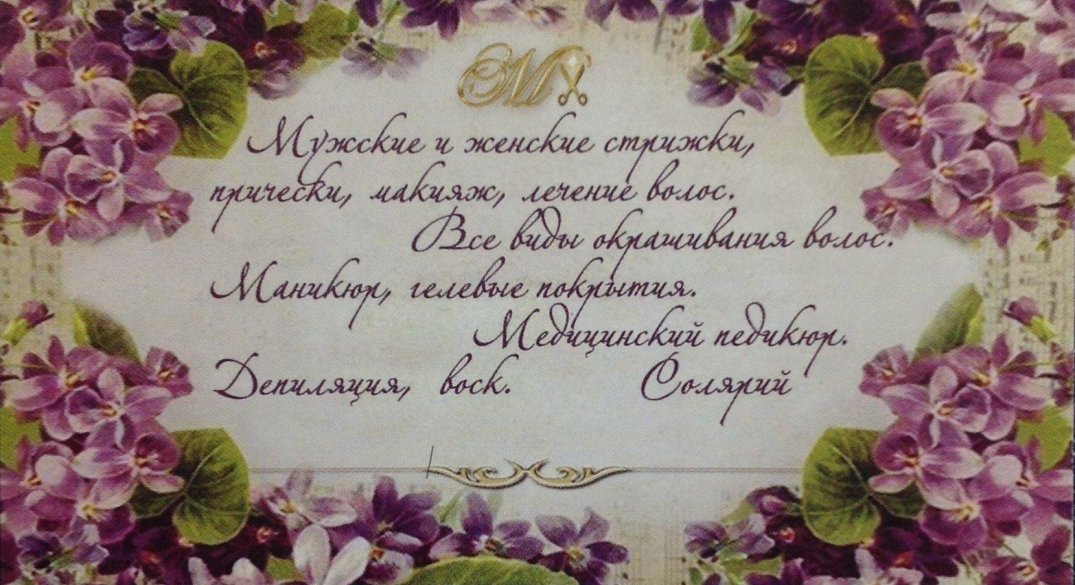 М
Мужские и женские стрижки,
прически, макияж, лечение волос.
Все виды окрашивания волос.
Маникюр, гелевые покрытия.
Медицинский педикюр.
Депиляция, воск. Солярий